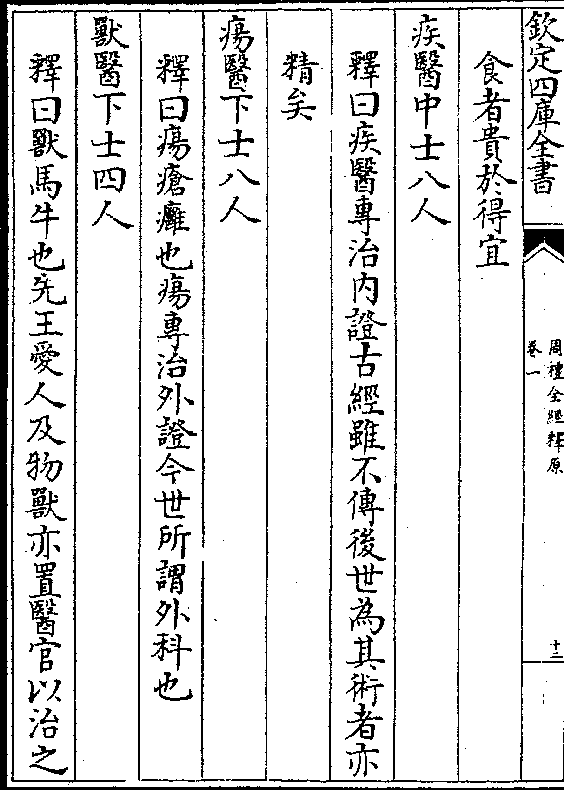 欽定四庫全書
周禮全經釋原
卷一
十二
食者貴於得宜
疾醫中士八人
釋曰疾醫專治内證古經雖不傳後世為其術者亦
精矣
瘍醫下士八人
釋曰瘍瘡癰也瘍專治外證今世所謂外科也
獸醫下士四人
釋曰獸馬牛也先王愛人及物獸亦置醫官以治之